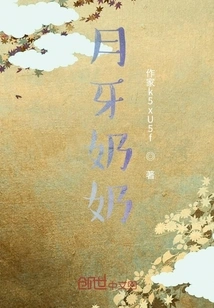 月牙奶奶
作家k5xU5f ◎ 著
创世中文网